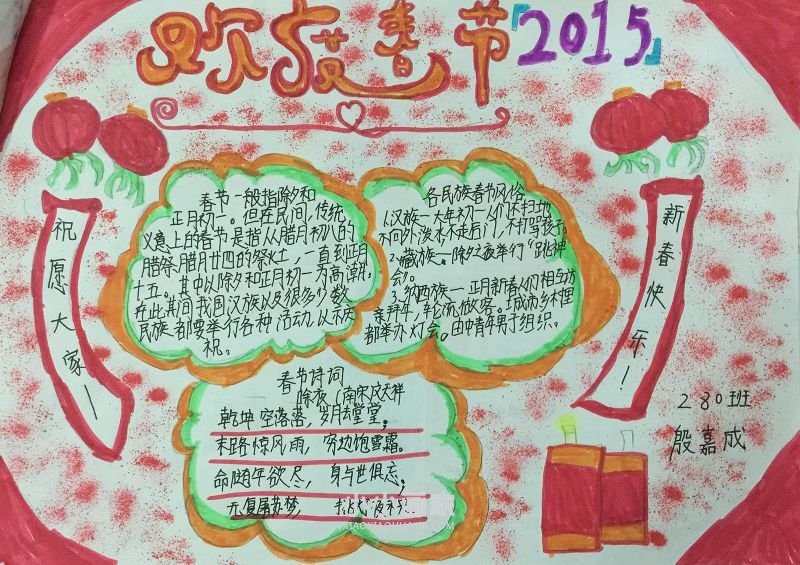 欢度春节『2015』
祝愿大家!
新春快乐!
春节一般指除夕和
正月初一。但在民间,传统
义意上的春节是指从腊月初八的
腊祭腊月廿四的祭灶,一直到正月
十五。其中以除夕和正月初一为高潮。
在此其间我国汉族以及很多少数
民族都要举行各种活动以示庆
祝。
各民族春节风俗
1.汉族—大年初一人们不扫地
不向外泼水不走后门,不打骂孩子。
2.藏族—除夕之夜举行“跳神
会”。
3.纳西族—正月新春人们相互访
亲拜年,轮流做客。城市乡村里
都举办灯会。由中青年男子组织。
春节诗词
除夜(南宋文天祥
乾坤空落落,岁月去堂堂;
末路惊风雨,穷边饱雪霜。
命随年欲尽,身与世俱忘;
无复屠苏梦,
280班
殷嘉成